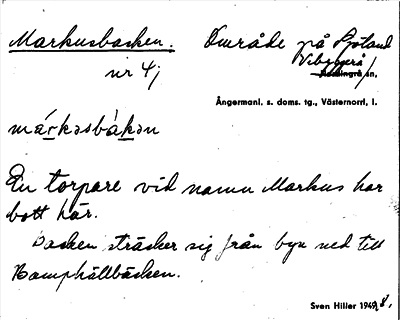 Markusbacken. Område på Byland
nr 4; Vibyggerå
Nordingrå sn,
Ångermanl. s. doms. tg., Västernorrl. l.
márkasbàkən
En torpare vid namn Markus har
bott här.
Backen sträcker sig från byn ned till
Kamphällbäcken.
Sven Hiller 1948.